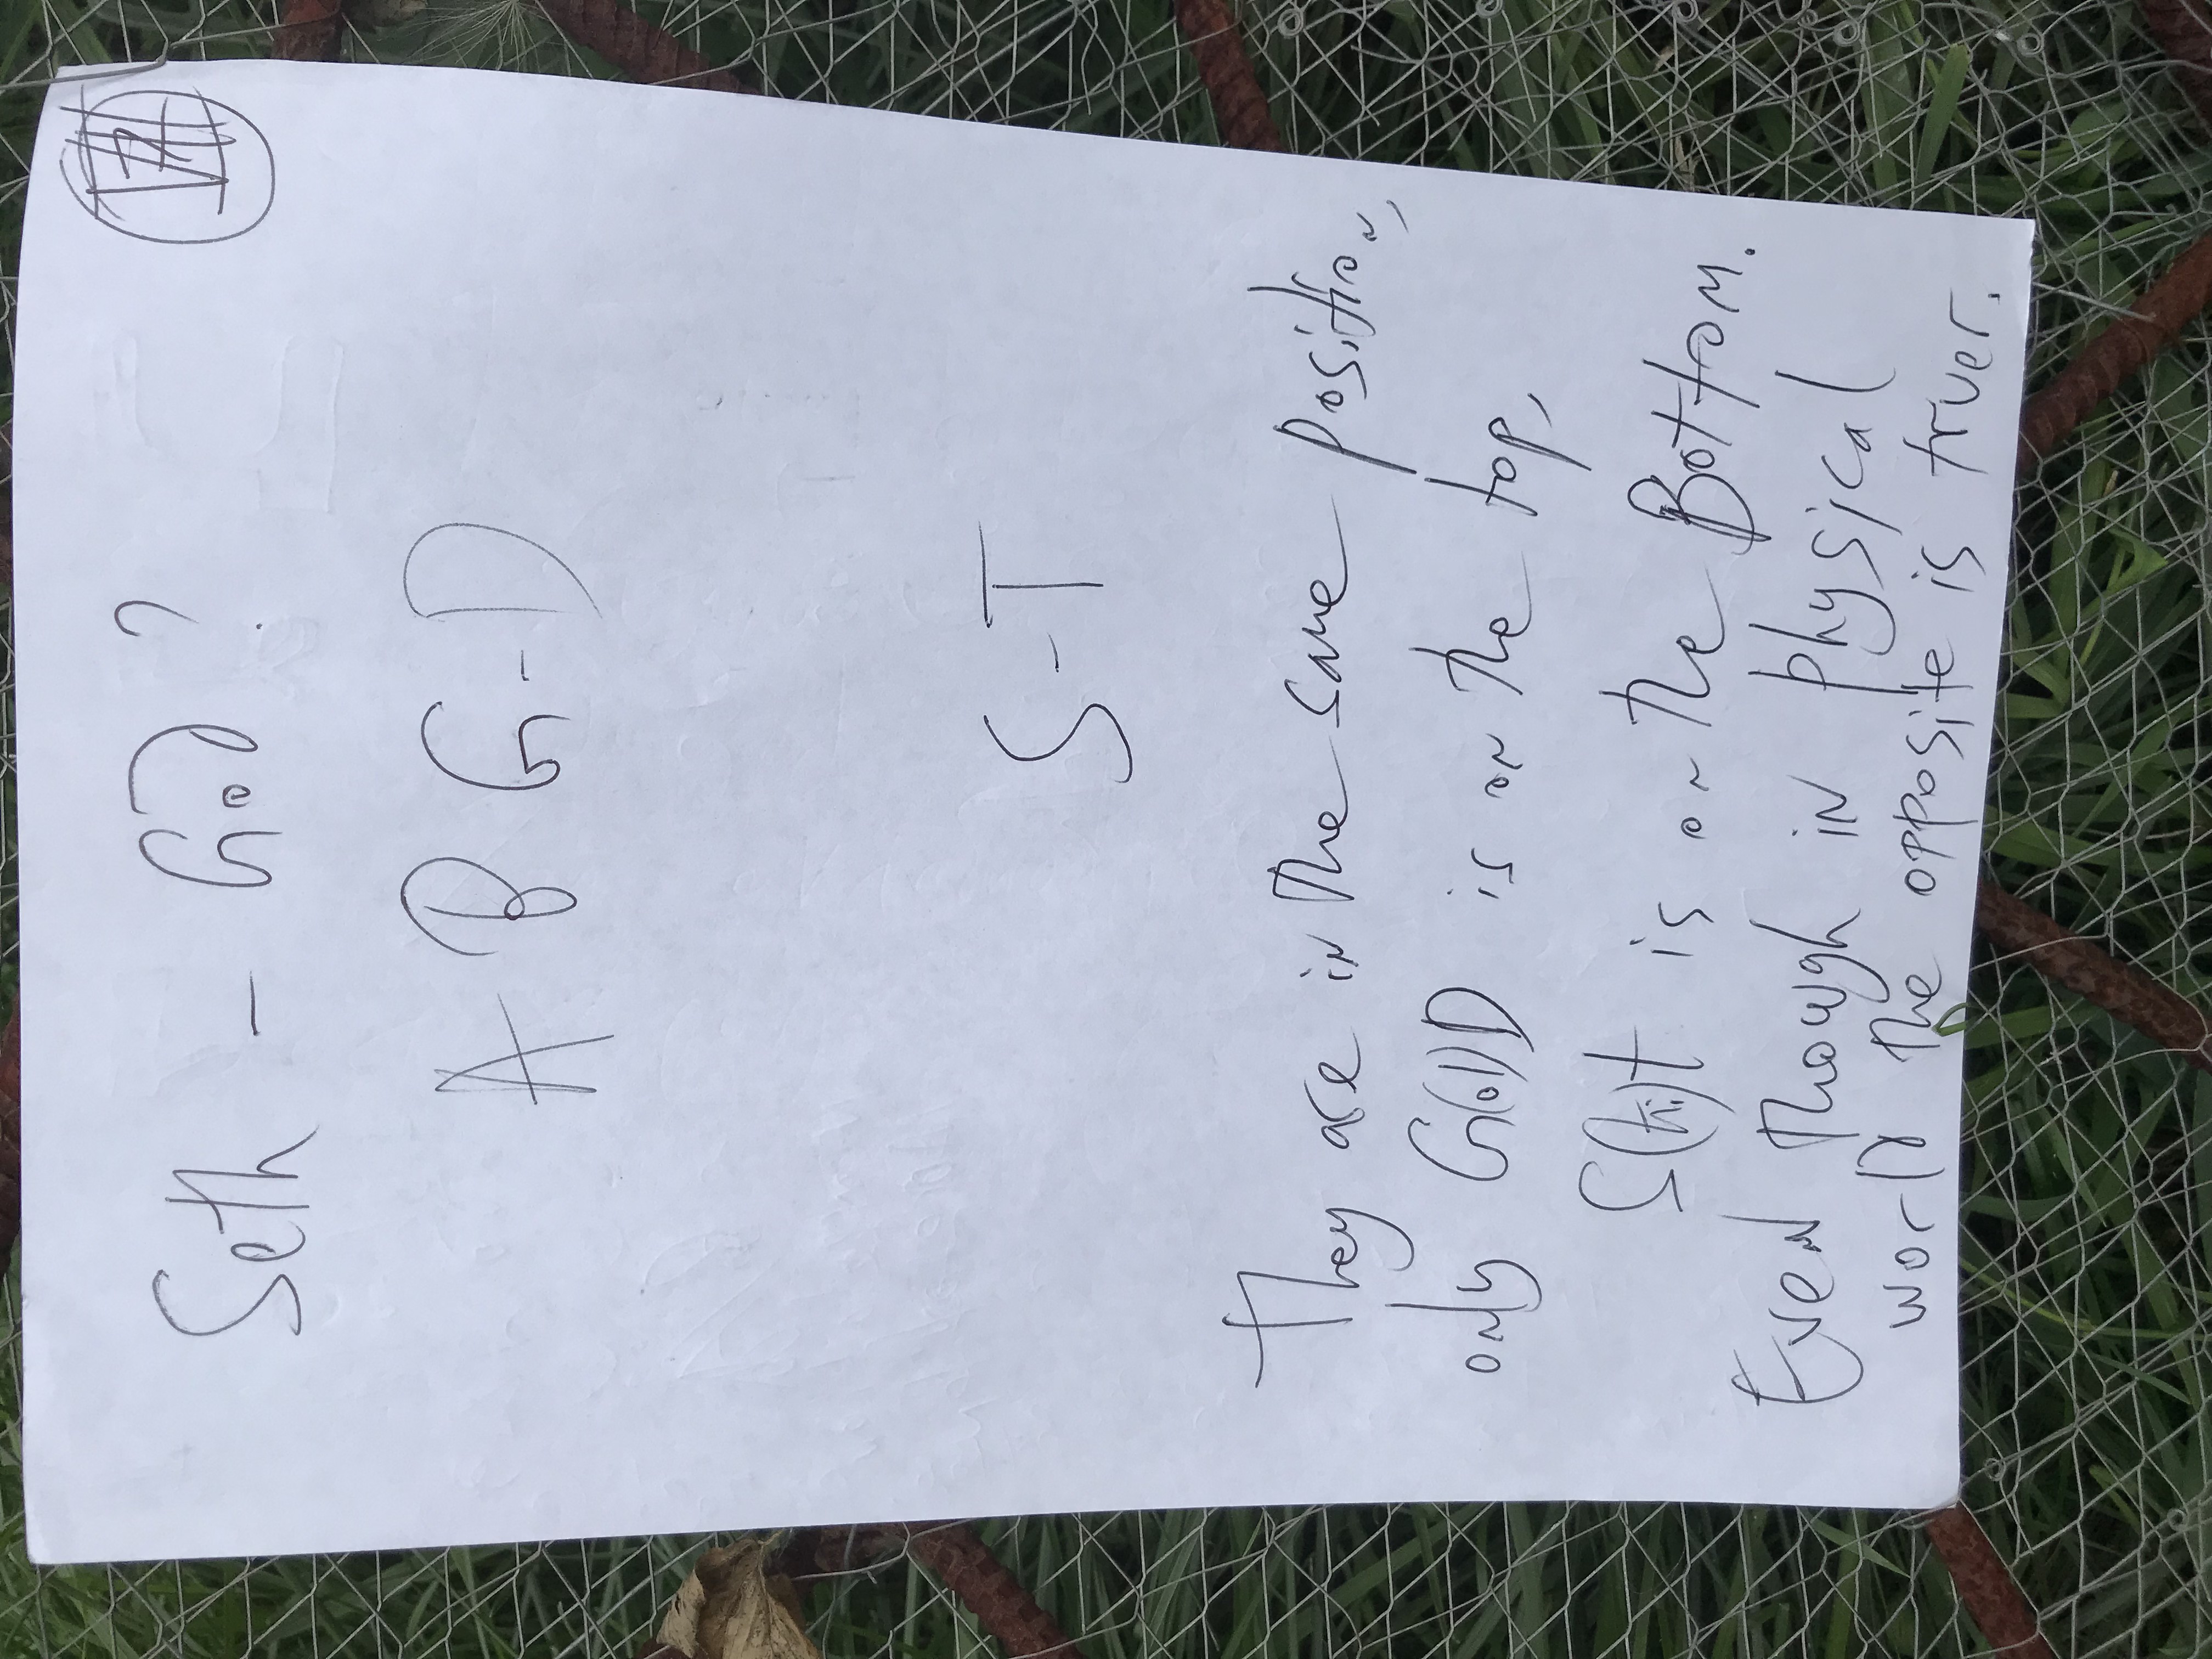 Seth - God ?
A B G-D
S-T
They are in the same position,
only G(o)D is on the top,
S(hi)t is on the Bottom.
Even though in physical
world the opposite is truer.